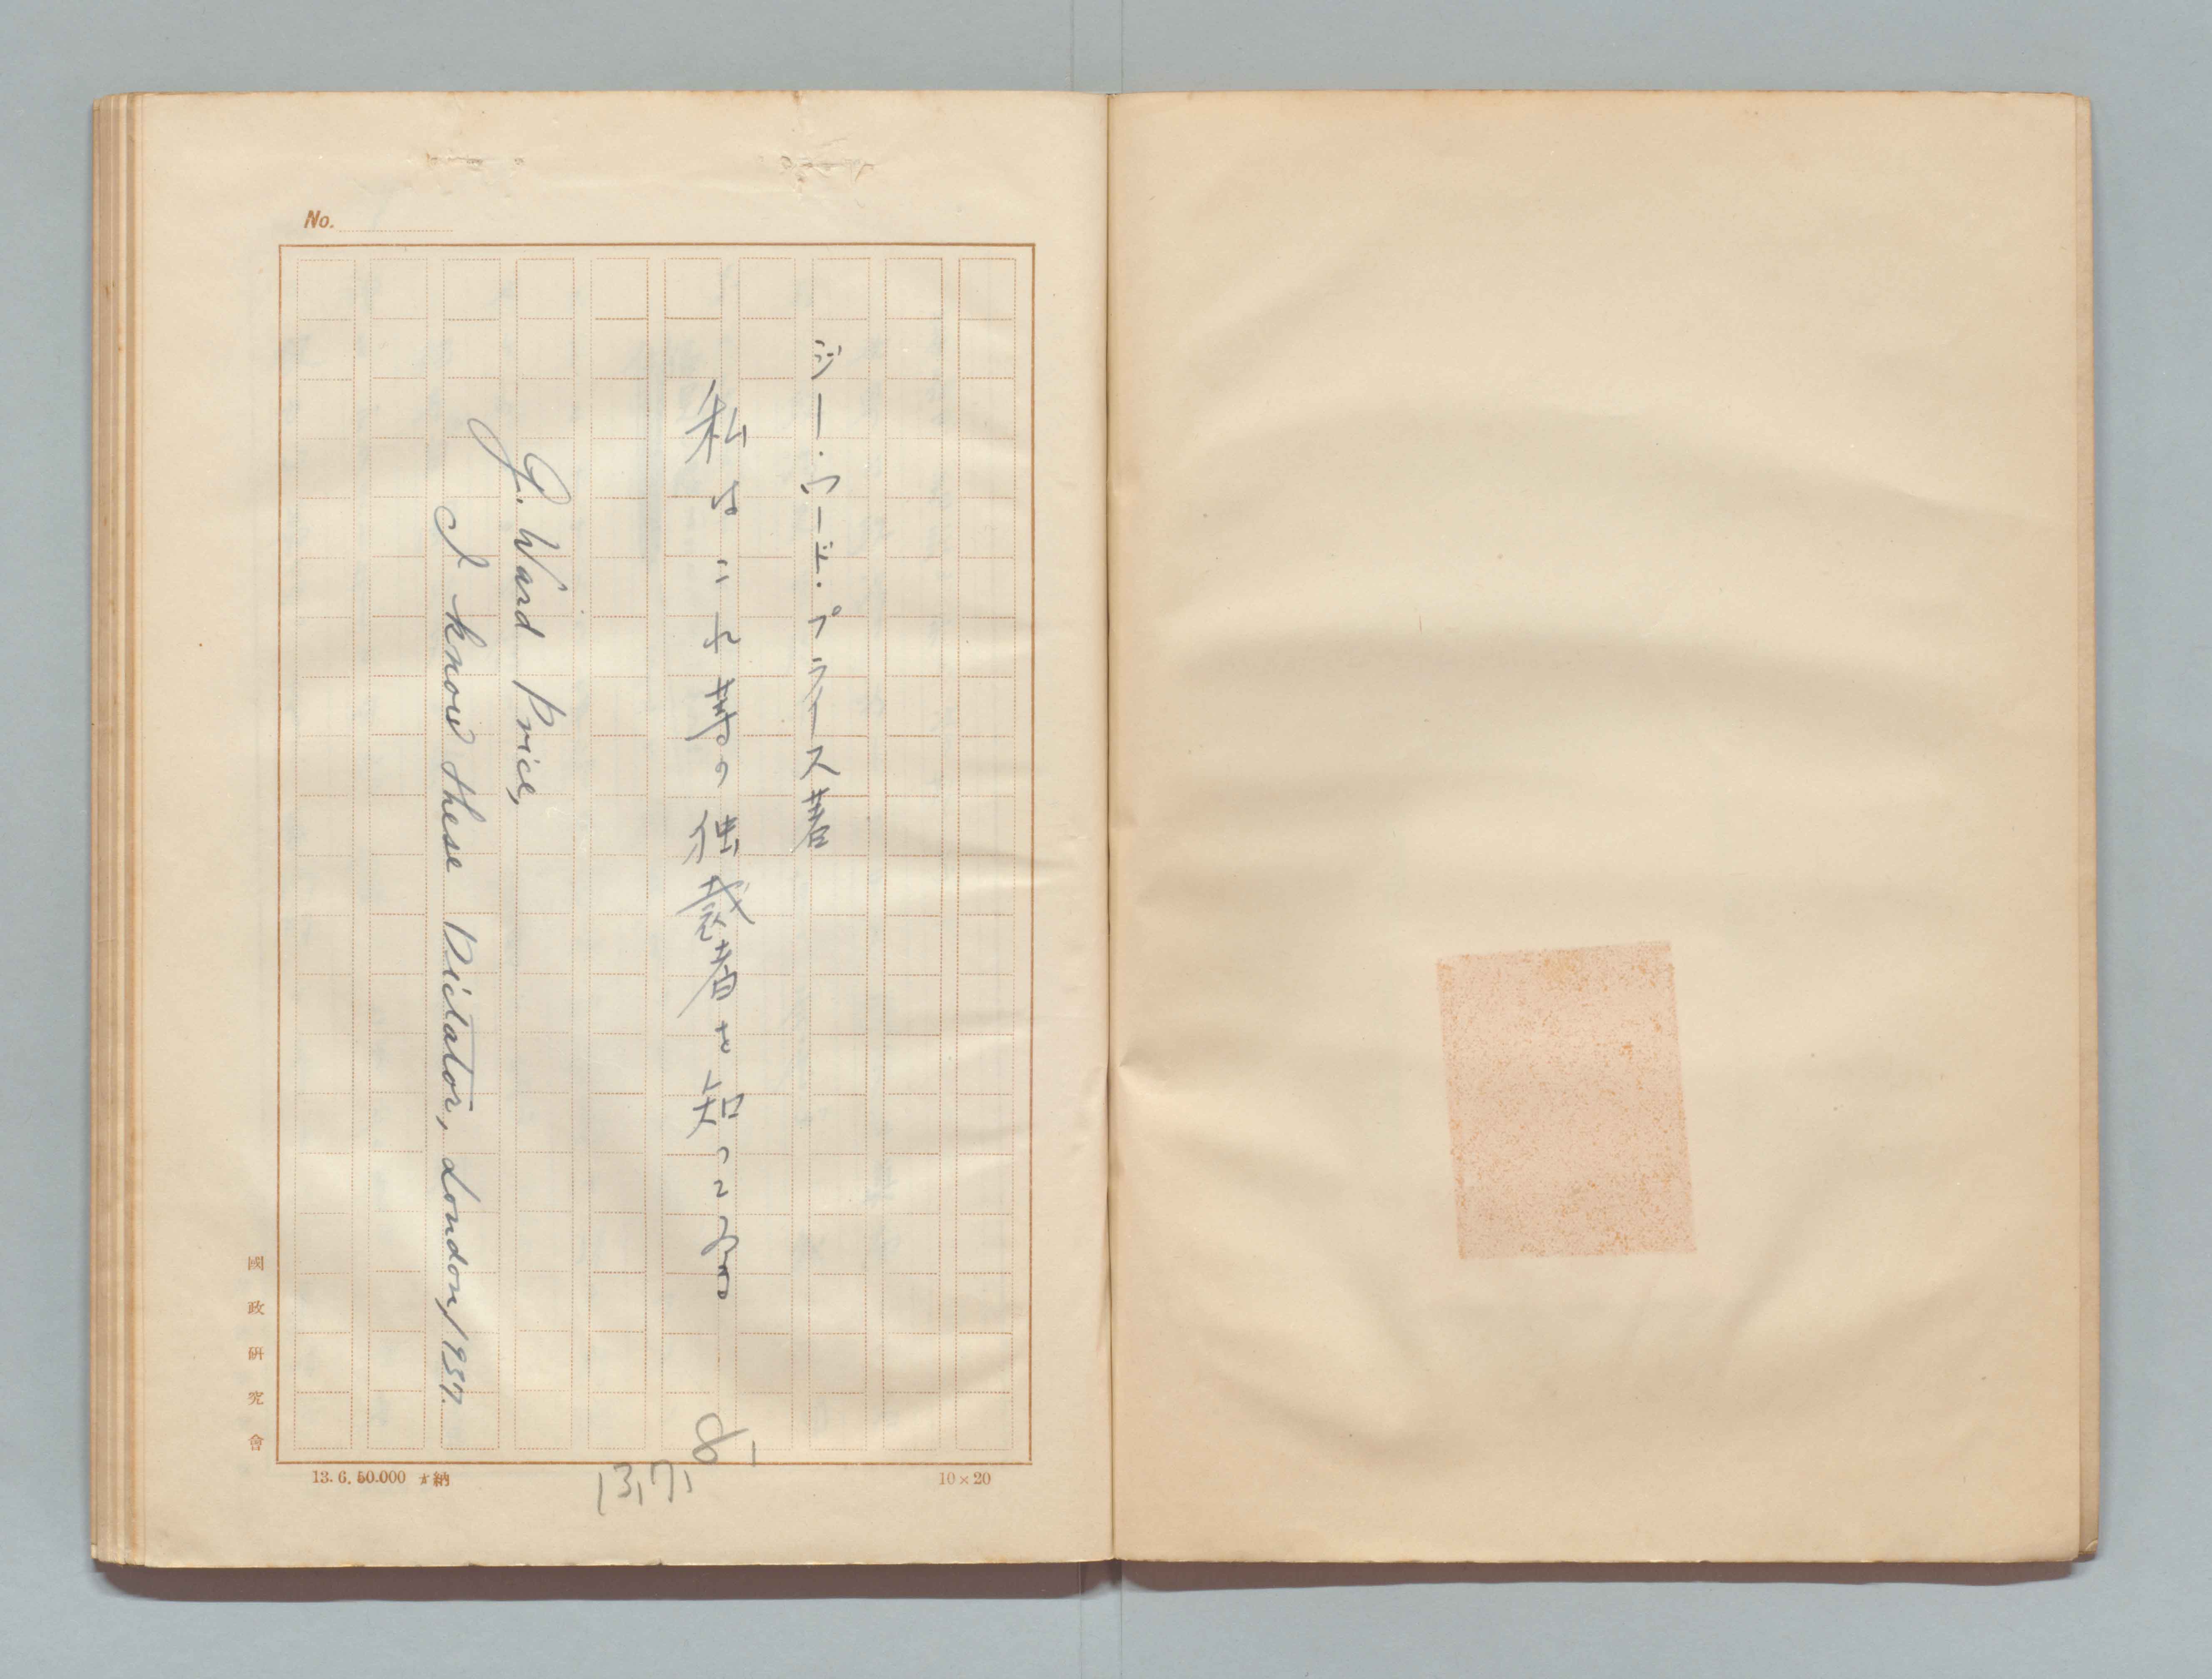 No.
ジー・ワード・プライス著
私はこれ等の独裁者を知つてゐる
G. Ward Price,
I know these Dictator, London, 1937.
8,
13,7,
國政研究會
13.6.50.000 納
10×20